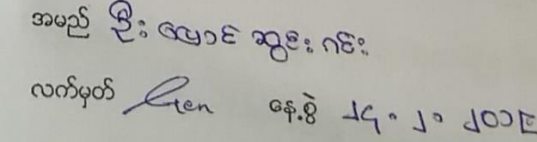 အမည် ဦး မောင် ဆွင်း ဂင်း
လက်မှတ် နေ့စွဲ ၂၄.၂.၂၀၁၉